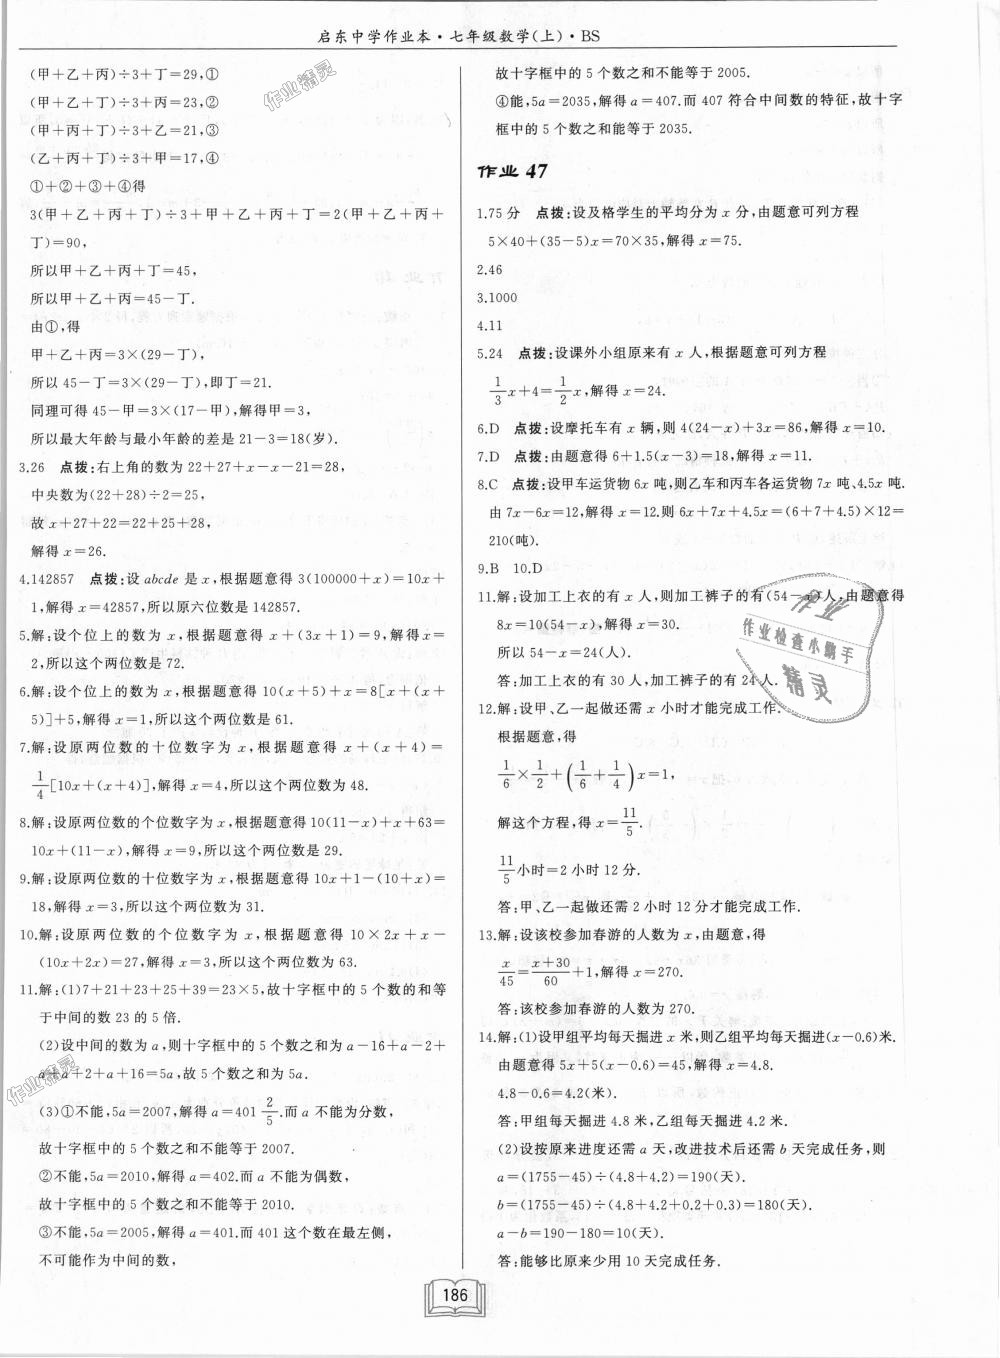 启东中学作业本·七年级数学(上)·BS
(甲+乙+丙)÷3+丁=29,①
(甲+乙+丁)÷3+丙=23,②
(甲+丙+丁)÷3+乙=21,③
(乙+丙+丁)÷3+甲=17,④
①+②+③+④得
3(甲+乙+丙+丁)÷3+甲+乙+丙+丁=2(甲+乙+丙+
丁)=90,
所以甲+乙+丙+丁=45,
所以甲+乙+丙=45-丁.
由①,得
甲+乙+丙=3×(29-丁),
所以45-丁=3×(29-丁),即丁=21.
同理可得45-甲=3×(17-甲),解得甲=3,
所以最大年龄与最小年龄的差是21-3=18(岁).
3.26 点拨:右上角的数为22+27+x-x-21=28,
中央数为(22+28)÷2=25,
故x+27+22=22+25+28,
解得x=26.
4.142857 点拨:设abcde是x,根据题意得3(100000+x)=10x+
1,解得x=42857,所以原六位数是142857.
5.解:设个位上的数为x,根据题意得x+(3x+1)=9,解得x=
2,所以这个两位数是72.
6.解:设个位上的数为x,根据题意得10(x+5)+x=8[x+(x+
5)]+5,解得x=1,所以这个两位数是61.
7.解:设原两位数的十位数字为x,根据题意得x+(x+4)=
1/4[10x+(x+4)],解得x=4,所以这个两位数为48.
8.解:设原两位数的个位数字为x,根据题意得10(11-x)+x+63=
10x+(11-x),解得x=9,所以这个两位数是29.
9.解:设原两位数的十位数字为x,根据题意得10x+1-(10+x)=
18,解得x=3,所以这个两位数为31.
10.解:设原两位数的个位数字为x,根据题意得10×2x+x-
(10x+2x)=27,解得x=3,所以这个两位数为63.
11.解:(1)7+21+23+25+39=23×5,故十字框中的5个数的和等
于中间的数23的5倍.
(2)设中间的数为a,则十字框中的5个数之和为a-16+a-2+
a+a+2+a+16=5a,故5个数之和为5a.
(3)①不能,5a=2007,解得a=401 2/5.而a不能为分数,
故十字框中的5个数之和不能等于2007.
②不能,5a=2010,解得a=402.而a不能为偶数,
故十字框中的5个数之和不能等于2010.
③不能,5a=2005,解得a=401.而401这个数在最左侧,
不可能作为中间的数,
故十字框中的5个数之和不能等于2005.
④能,5a=2035,解得a=407.而407符合中间数的特征,故十字
框中的5个数之和能等于2035.
作业47
1.75分 点拨:设及格学生的平均分为x分,由题意可列方程
5×40+(35-5)x=70×35,解得x=75.
2.46
3.1000
4.11
5.24 点拨:设课外小组原来有x人,根据题意可列方程
1/3x+4=1/2x,解得x=24.
6.D 点拨:设摩托车有x辆,则4(24-x)+3x=86,解得x=10.
7.D 点拨:由题意得6+1.5(x-3)=18,解得x=11.
8.C 点拨:设甲车运货物6x吨,则乙车和丙车各运货物7x吨、4.5x吨.
由7x-6x=12,解得x=12.则6x+7x+4.5x=(6+7+4.5)×12=
210(吨).
9.B 10.D
11.解:设加工上衣的有x人,则加工裤子的有(54-x)人,由题意得
8x=10(54-x),解得x=30.
所以54-x=24(人).
答:加工上衣的有30人,加工裤子的有24人.
12.解:设甲、乙一起做还需x小时才能完成工作.
根据题意,得
1/6×1/2+(1/6+1/4)x=1,
解这个方程,得x=11/5.
11/5小时=2小时12分.
答:甲、乙一起做还需2小时12分才能完成工作.
13.解:设该校参加春游的人数为x,由题意,得
x/45=(x+30)/60+1,解得x=270.
答:该校参加春游的人数为270.
14.解:(1)设甲组平均每天掘进x米,则乙组平均每天掘进(x-0.6)米.
由题意得5x+5(x-0.6)=45,解得x=4.8.
4.8-0.6=4.2(米).
答:甲组每天掘进4.8米,乙组每天掘进4.2米.
(2)设按原来进度还需a天,改进技术后还需b天完成任务,则
a=(1755-45)÷(4.8+4.2)=190(天).
b=(1755-45)÷(4.8+4.2+0.2+0.3)=180(天).
a-b=190-180=10(天).
答:能够比原来少用10天完成任务.
186
作业精灵
作业精灵
作业检查小鹏手
精灵